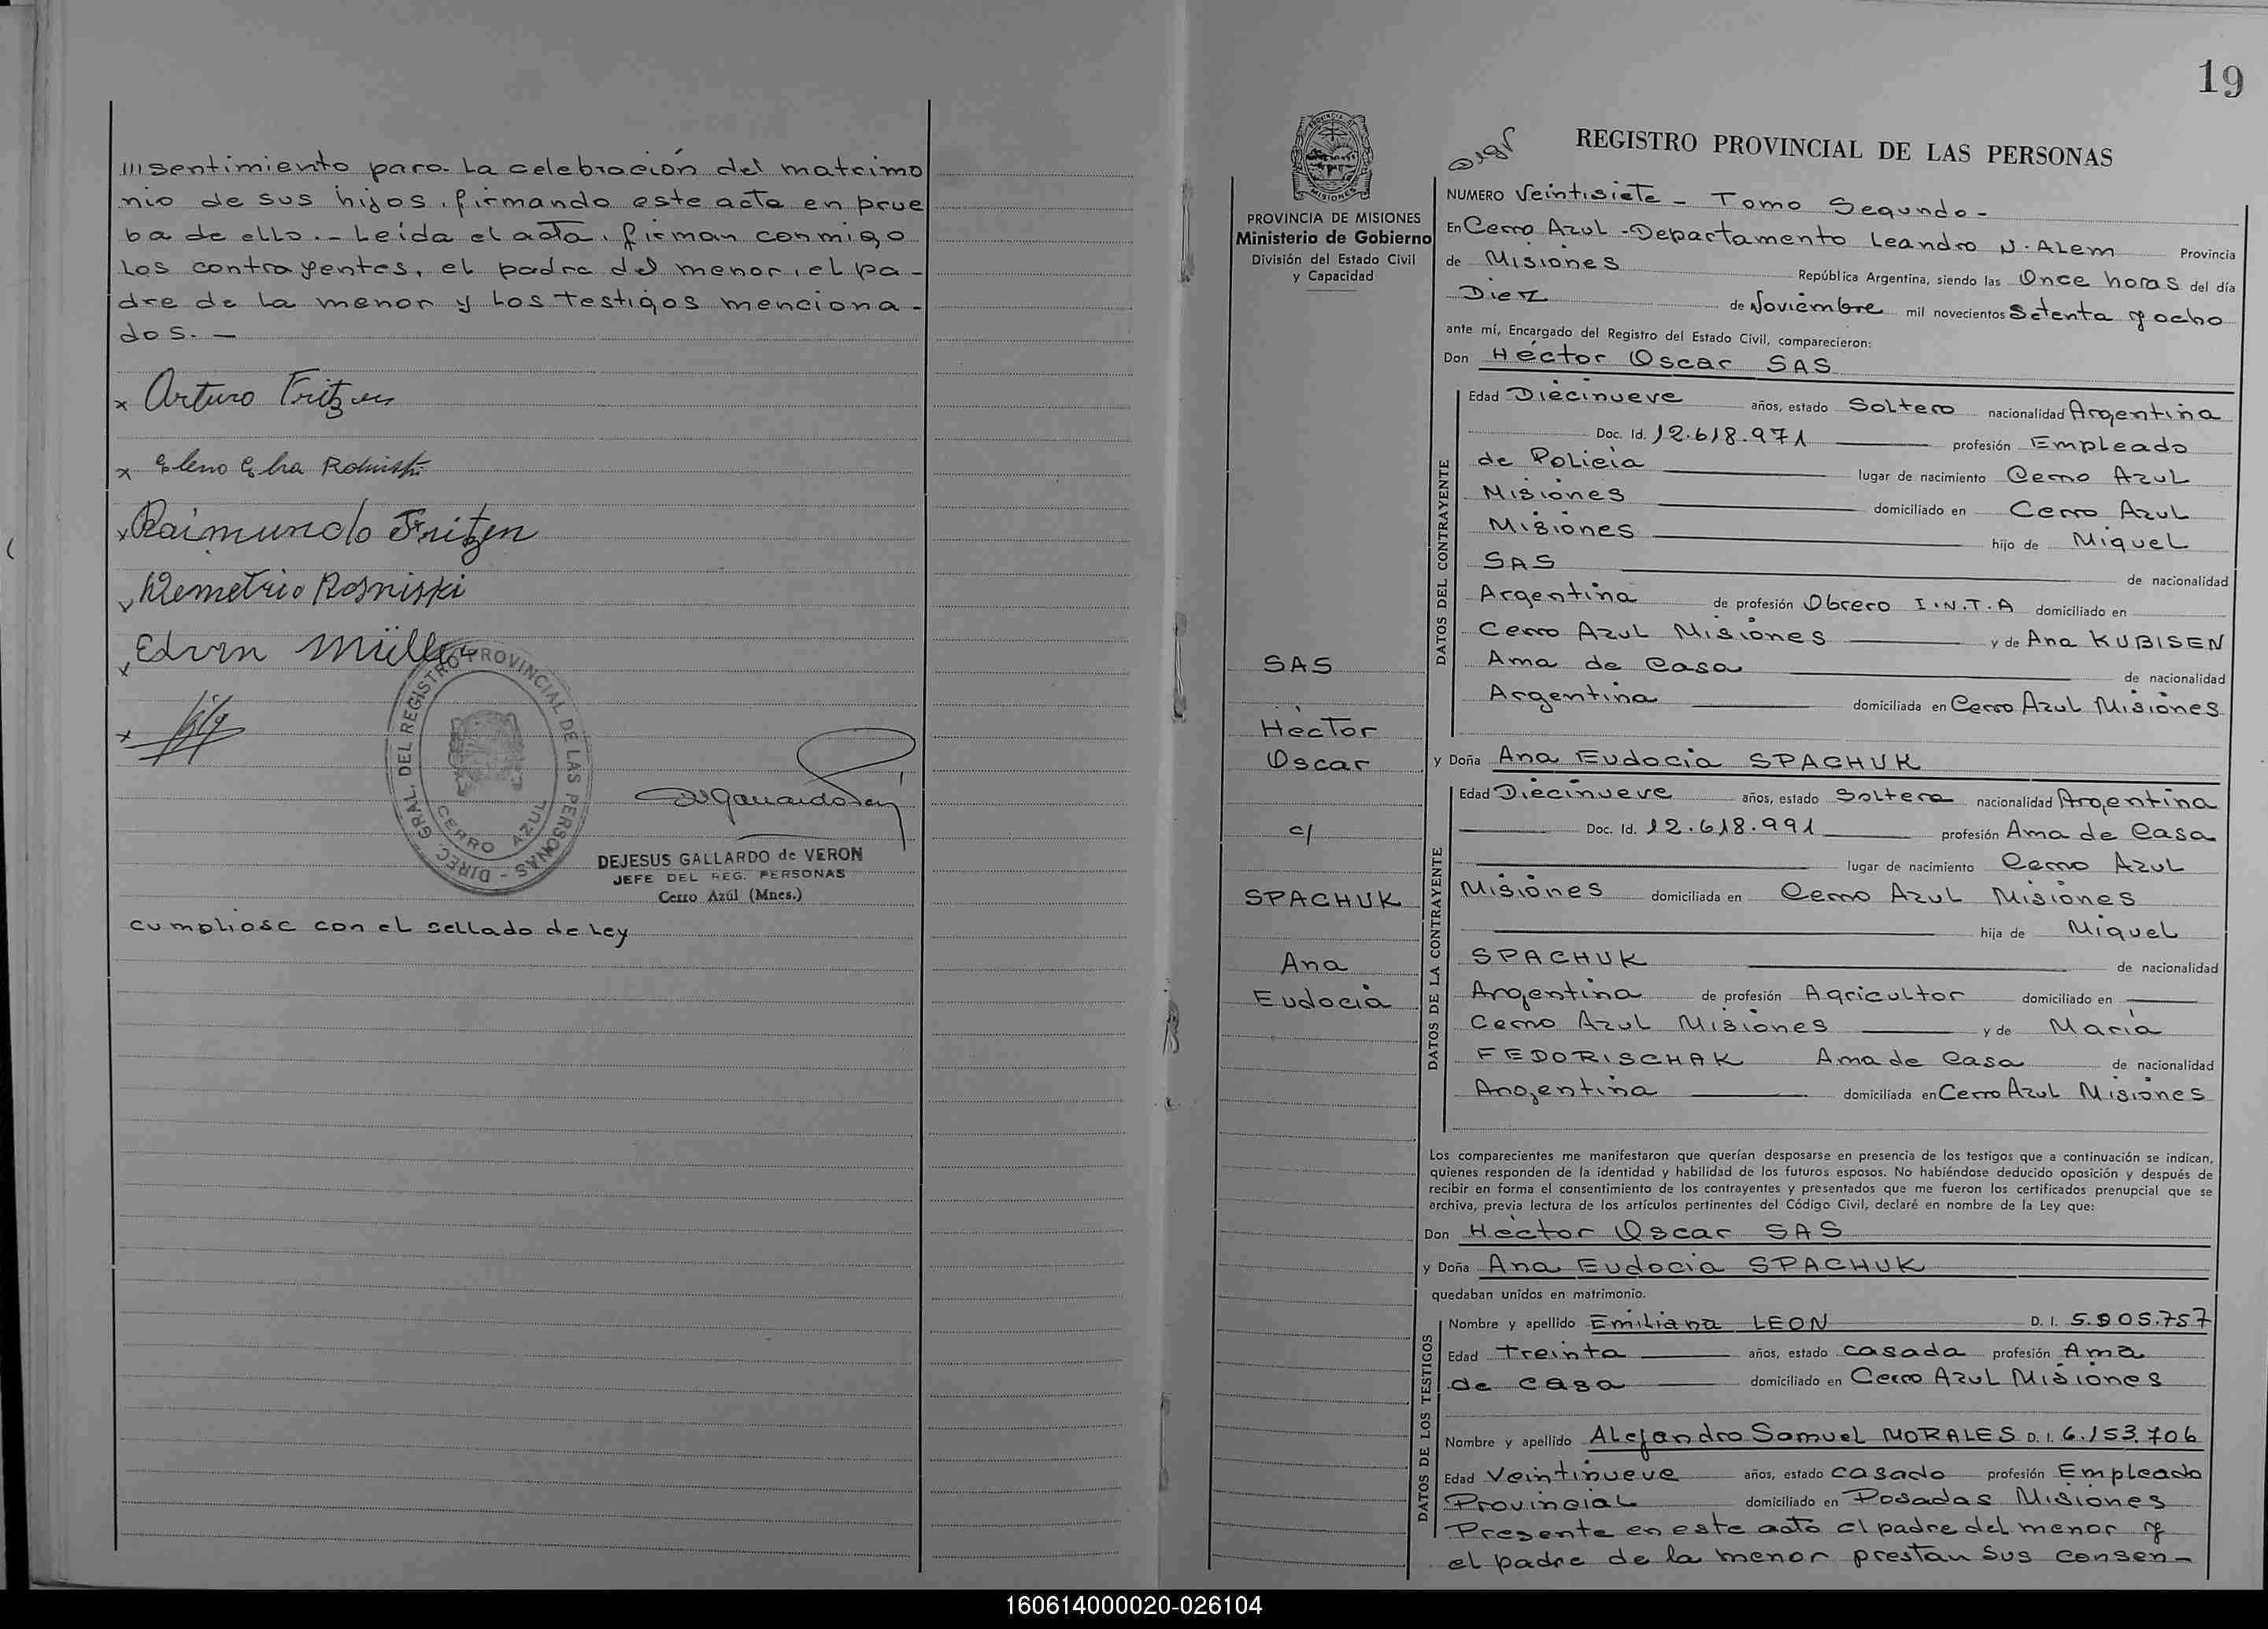 ///sentimiento para La celebración del matrimo
nio de sus hijos, firmando este acta en prue
ba de ello.- Leída el acta, firman conmigo
Los contrayentes, el padre del menor, el pa-
dre de la menor y Los testigos menciona-
dos.-
x Arturo Fritzen
x
x Raimundo Fritzen
x Demetrio Rosniski
x Edvin Müller
x
DIREC. GRAL. DEL REGISTRO PROVINCIAL DE LAS PERSONAS -
CERRO AZUL
DEJESUS GALLARDO de VERON
JEFE DEL REG. PERSONAS
Cerro Azúl (Mnes.)
cumpliose con el sellado de Ley
19
PROVINCIA DE MISIONES
Ministerio de Gobierno
División del Estado Civil
y Capacidad
SAS
Héctor
Oscar
c/
SPACHUK
Ana
Eudocia
REGISTRO PROVINCIAL DE LAS PERSONAS
NUMERO Veintisiete - Tomo Segundo -
En Cerro Azul - Departamento Leandro N. Alem Provincia
de Misiones República Argentina, siendo las Once horas del día
Diez de Noviembre mil novecientos Setenta y ocho
ante mí, Encargado del Registro del Estado Civil, comparecieron:
Don Héctor Oscar SAS
DATOS DEL CONTRAYENTE
Edad Diecinueve años, estado Soltero nacionalidad Argentina
Doc. Id. 12.618.971 profesión Empleado
de Policía lugar de nacimiento Cerro Azul
Misiones domiciliado en Cerro Azul
Misiones hijo de Miguel
SAS de nacionalidad
Argentina de profesión Obrero I.N.T.A domiciliado en
Cerro Azul Misiones y de Ana KUBISEN
Ama de Casa de nacionalidad
Argentina domiciliada en Cerro Azul Misiones
y Doña Ana Eudocia SPACHUK
DATOS DE LA CONTRAYENTE
Edad Diecinueve años, estado Soltera nacionalidad Argentina
Doc. Id. 12.618.991 profesión Ama de Casa
lugar de nacimiento Cerro Azul
Misiones domiciliada en Cerro Azul Misiones
hija de Miguel
SPACHUK de nacionalidad
Argentina de profesión Agricultor domiciliado en
Cerro Azul Misiones y de María
FEDORISCHAK Ama de Casa de nacionalidad
Argentina domiciliada en Cerro Azul Misiones
Los comparecientes me manifestaron que querían desposarse en presencia de los testigos que a continuación se indican,
quienes responden de la identidad y habilidad de los futuros esposos. No habiéndose deducido oposición y después de
recibir en forma el consentimiento de los contrayentes y presentados que me fueron los certificados prenupcial que se
archiva, previa lectura de los artículos pertinentes del Código Civil, declaré en nombre de la Ley que:
Don Héctor Oscar SAS
y Doña Ana Eudocia SPACHUK
quedaban unidos en matrimonio.
DATOS DE LOS TESTIGOS
Nombre y apellido Emiliana LEON D. I. 5.905.757
Edad Treinta años, estado casada profesión Ama
de casa domiciliado en Cerro Azul Misiones
Nombre y apellido Alejandro Samuel MORALES D. I. 6.153.706
Edad Veintinueve años, estado casado profesión Empleado
Provincial domiciliado en Posadas Misiones
Presente en este acto el padre del menor y
el padre de la menor prestan sus consen-
160614000020-026104